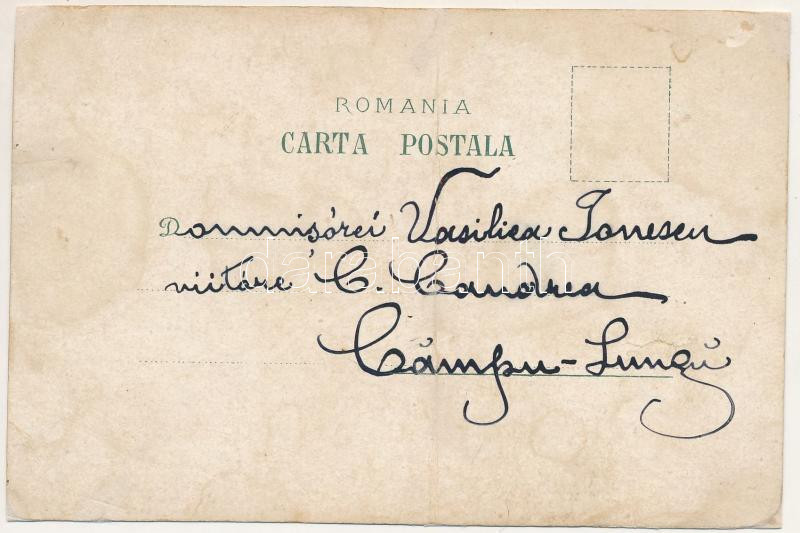 ROMANIA
CARTA POSTALA
Domnisórei Vasilica Ionescu
viitóre C. Candrea
Câmpu-Lungŭ
darabanth